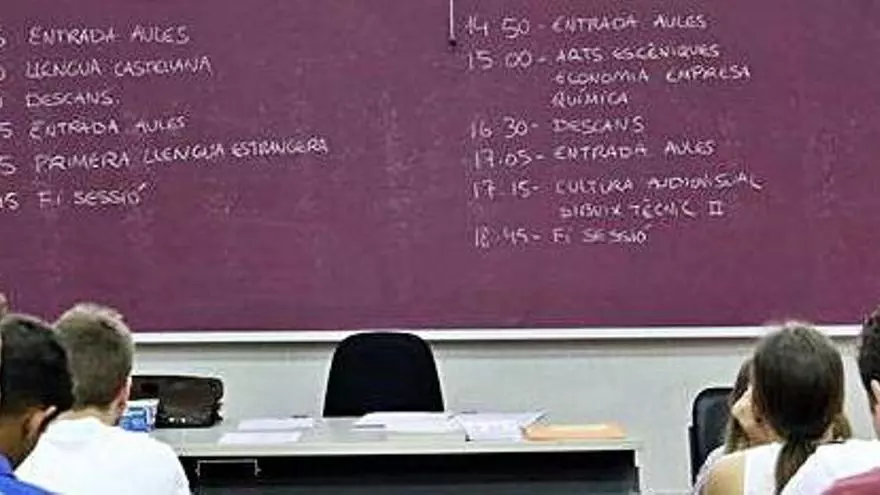 5 ENTRADA AULES
LLENGUA CASTELLANA
DESCANS.
5 ENTRADA AULES
5 PRIMERA LLENGUA ESTRANGERA
45 FI SESSIÓ
14 50 - ENTRADA AULES
15 00 - ARTS ESCÈNIQUES
ECONOMIA EMPRESA
QUÍMICA
16 30 - DESCANS
17.05 - ENTRADA AULES
17.15 - CULTURA AUDIOVISUAL
DIBUIX TÈCNIC II
18.45 - FI SESSIÓ